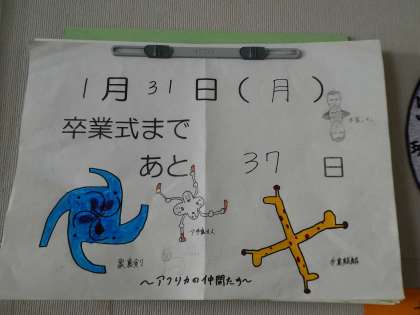 1月31日(月)
卒業式まで
あと 37 日
〜アフリカの仲間たち〜